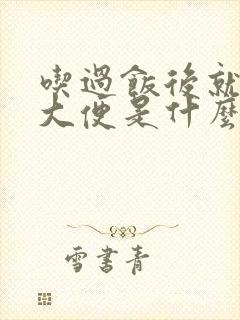 喫過飯後就
大便是什麼
雪書青